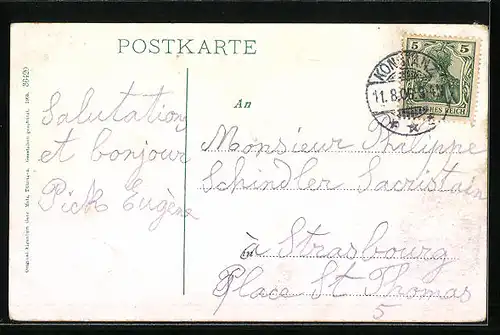 POSTKARTE
5 5
KONSTANZ
11.8.06
REICH
An
Salutations
et bonjour
Pick Eugène
Monsieur Philippe
Schindler Sacristain
in
à Strasbourg
Place St Thomas
5
36420